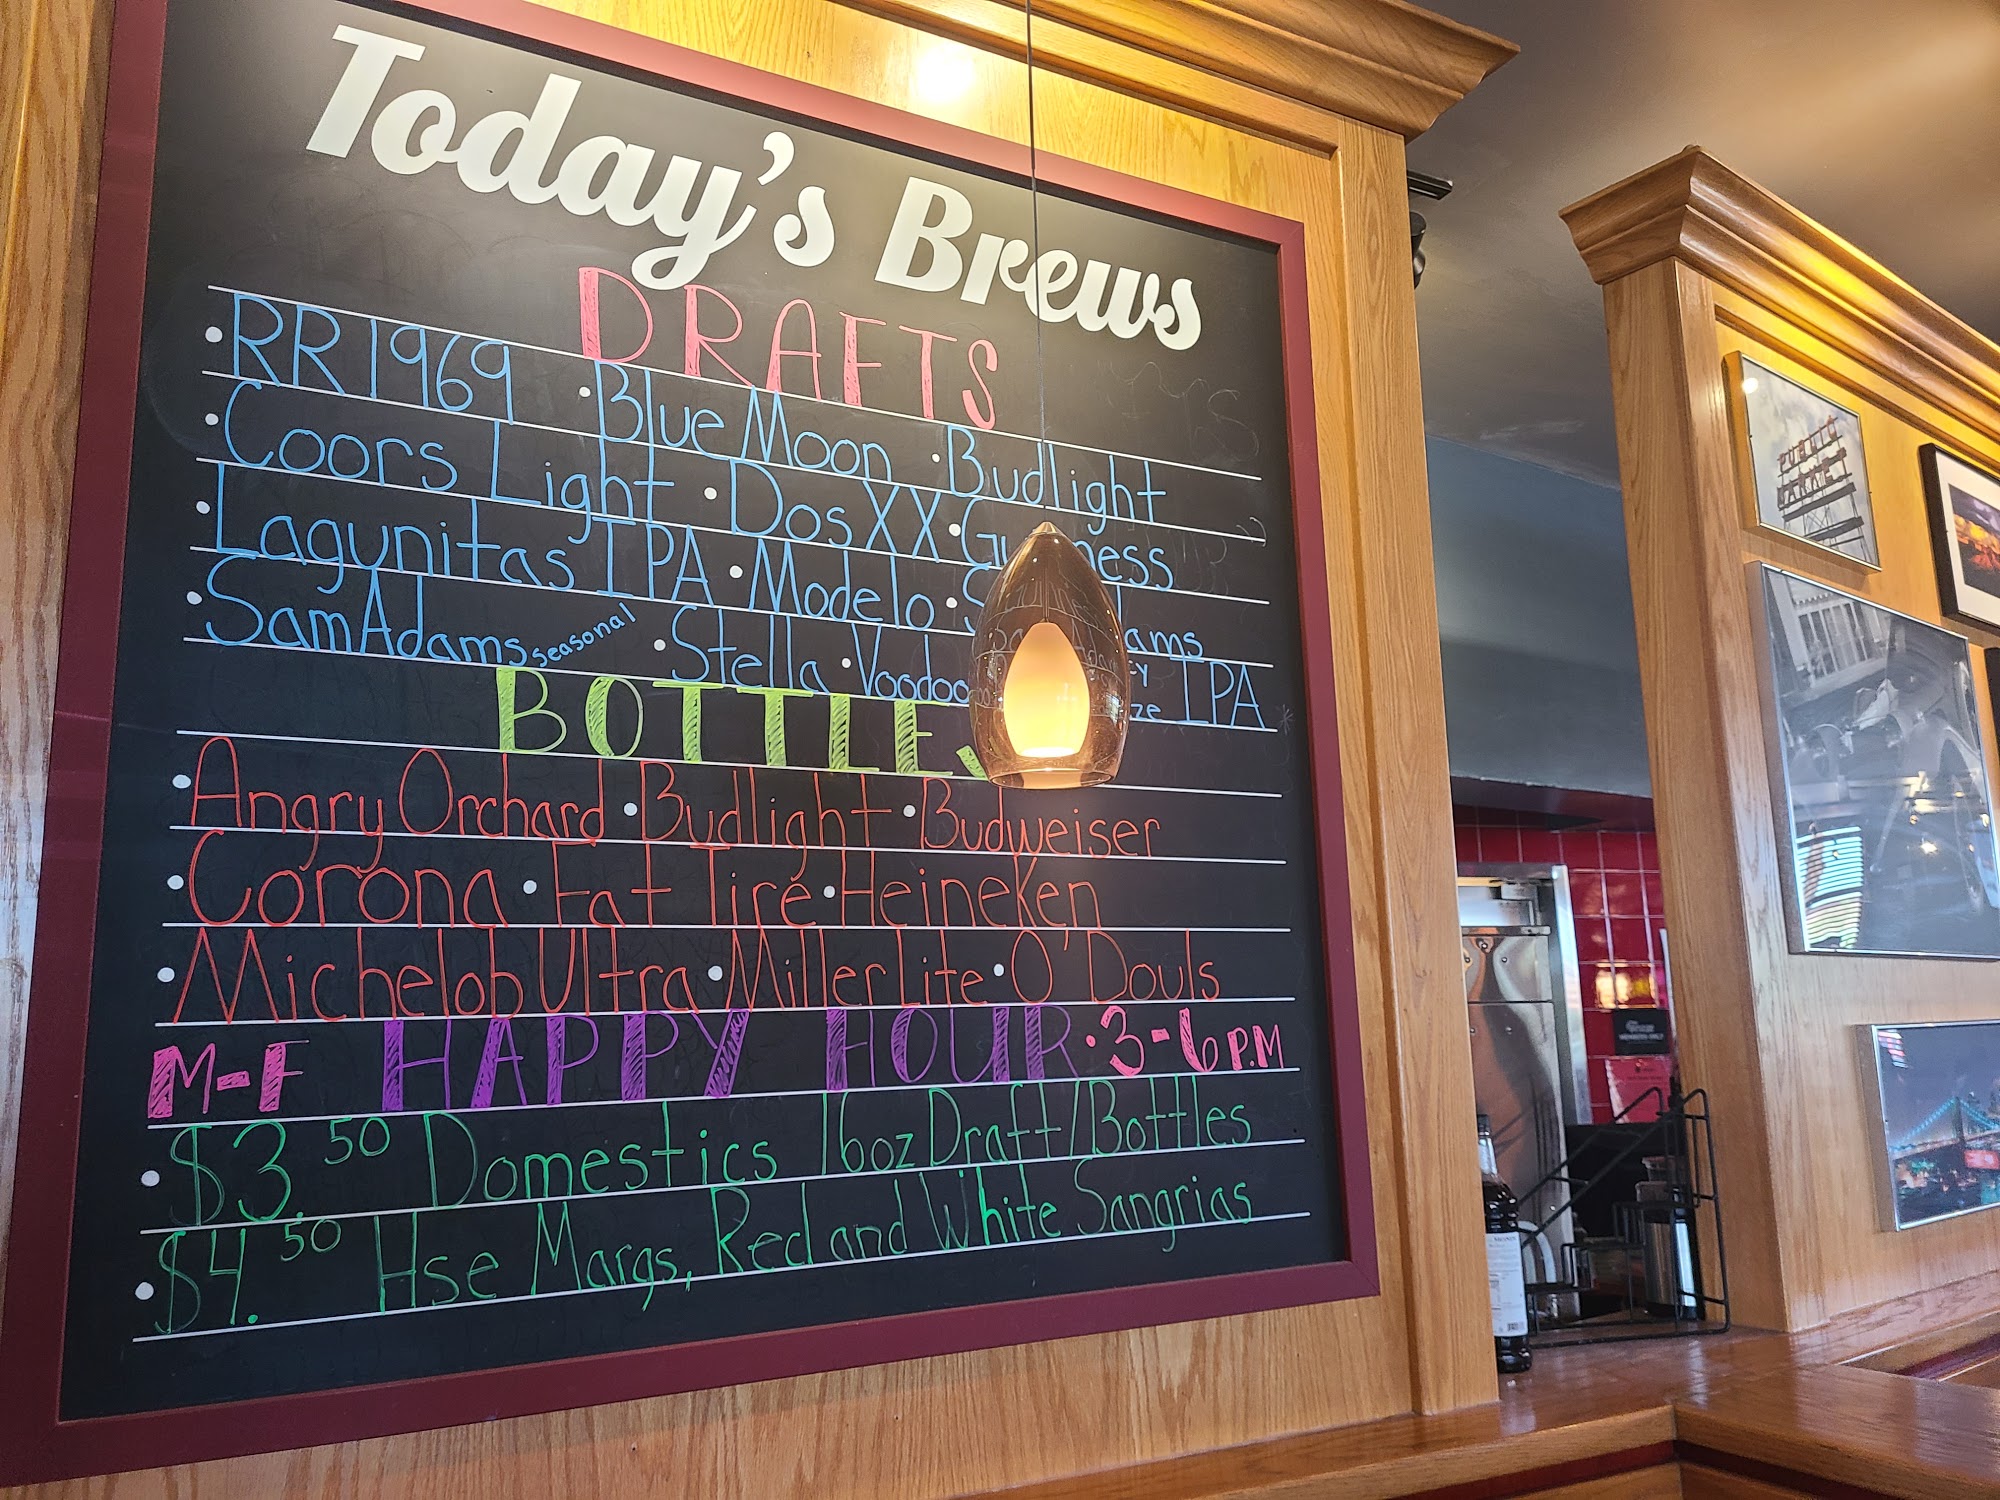 Today's Brews
DRAFTS
• RR1969 • Blue Moon • Budlight
• Coors Light • Dos XX •
• Lagunitas IPA • Modelo •
• Sam Adams seasonal • Stella • Voodoo IPA
BOTTLES
• Angry Orchard • Budlight • Budweiser
• Corona • Fat Tire • Heineken
• Michelob Ultra • Miller Lite • O'Douls
M-F HAPPY HOUR • 3-6 P.M
• $3.50 Domestics 16oz Draft/Bottles
• $4.50 Hse Margs, Red and White Sangrias
PUBLIC
MARKET